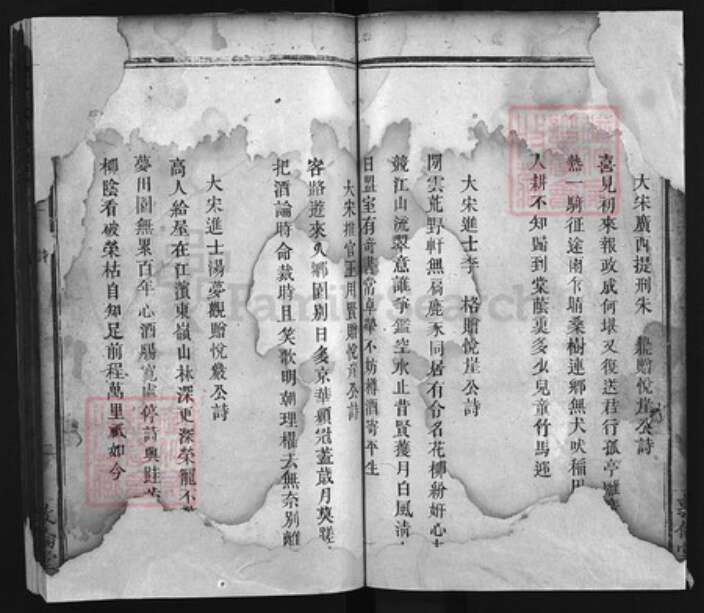 大宋廣西提刑朱 贈悅崖公詩
喜見初來報政成何堪又復送君行孤亭
熱一騎征途雨乍晴桑樹連鄉無犬吠稻田
人耕不知歸到棠蔭裏多少兒童竹馬迎
大宋進士李 格贈悅崖公詩
閑雲荒野軒無扃鹿豕同居有令名花柳粉妍心
競江山流翠意難爭鑑空水止昔賢獲月白風清
日盟室有奇書常卓犖不妨樽酒寄平生
大宋推官王用賢贈悅崖公詩
客路遊來久鄉園別日多京華顧冠蓋歲月莫蹉
把酒論時命裁詩且笑歌明朝理櫂去無奈別離
大宋進士湯夢觀贈悅巖公詩
高人給屋在江濱東嶺山林深更深榮寵不
夢田園無累百年心酒腸寬處停詩興
柳陰看破榮枯自知足前程萬里祇如今
FamilySearch